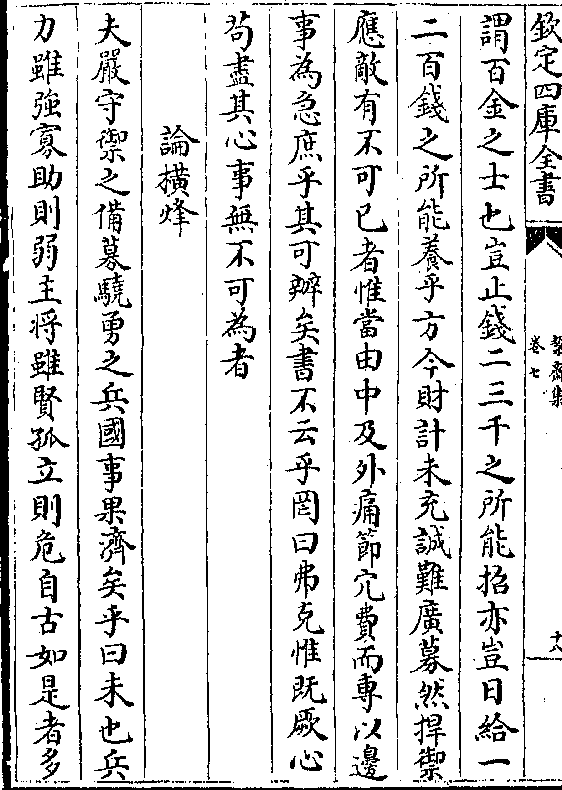 欽定四庫全書
絜齋集
卷七
十八
謂百金之士也豈止錢二三千之所能招亦豈日給一
二百錢之所能養乎方今財計未充誠難廣募然捍禦
應敵有不可已者惟當由中及外痛節冗費而專以邊
事為急庶乎其可辦矣書不云乎罔曰弗克惟既厥心
苟盡其心事無不可為者
論橫烽
夫嚴守禦之備募驍勇之兵國事果濟矣乎曰未也兵
力雖強寡助則弱主将雖賢孤立則危自古如是者多